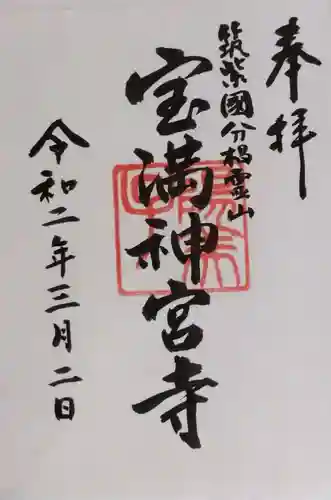 奉拝
筑紫國分楊霊山
宝満神宮寺
令和二年三月二日